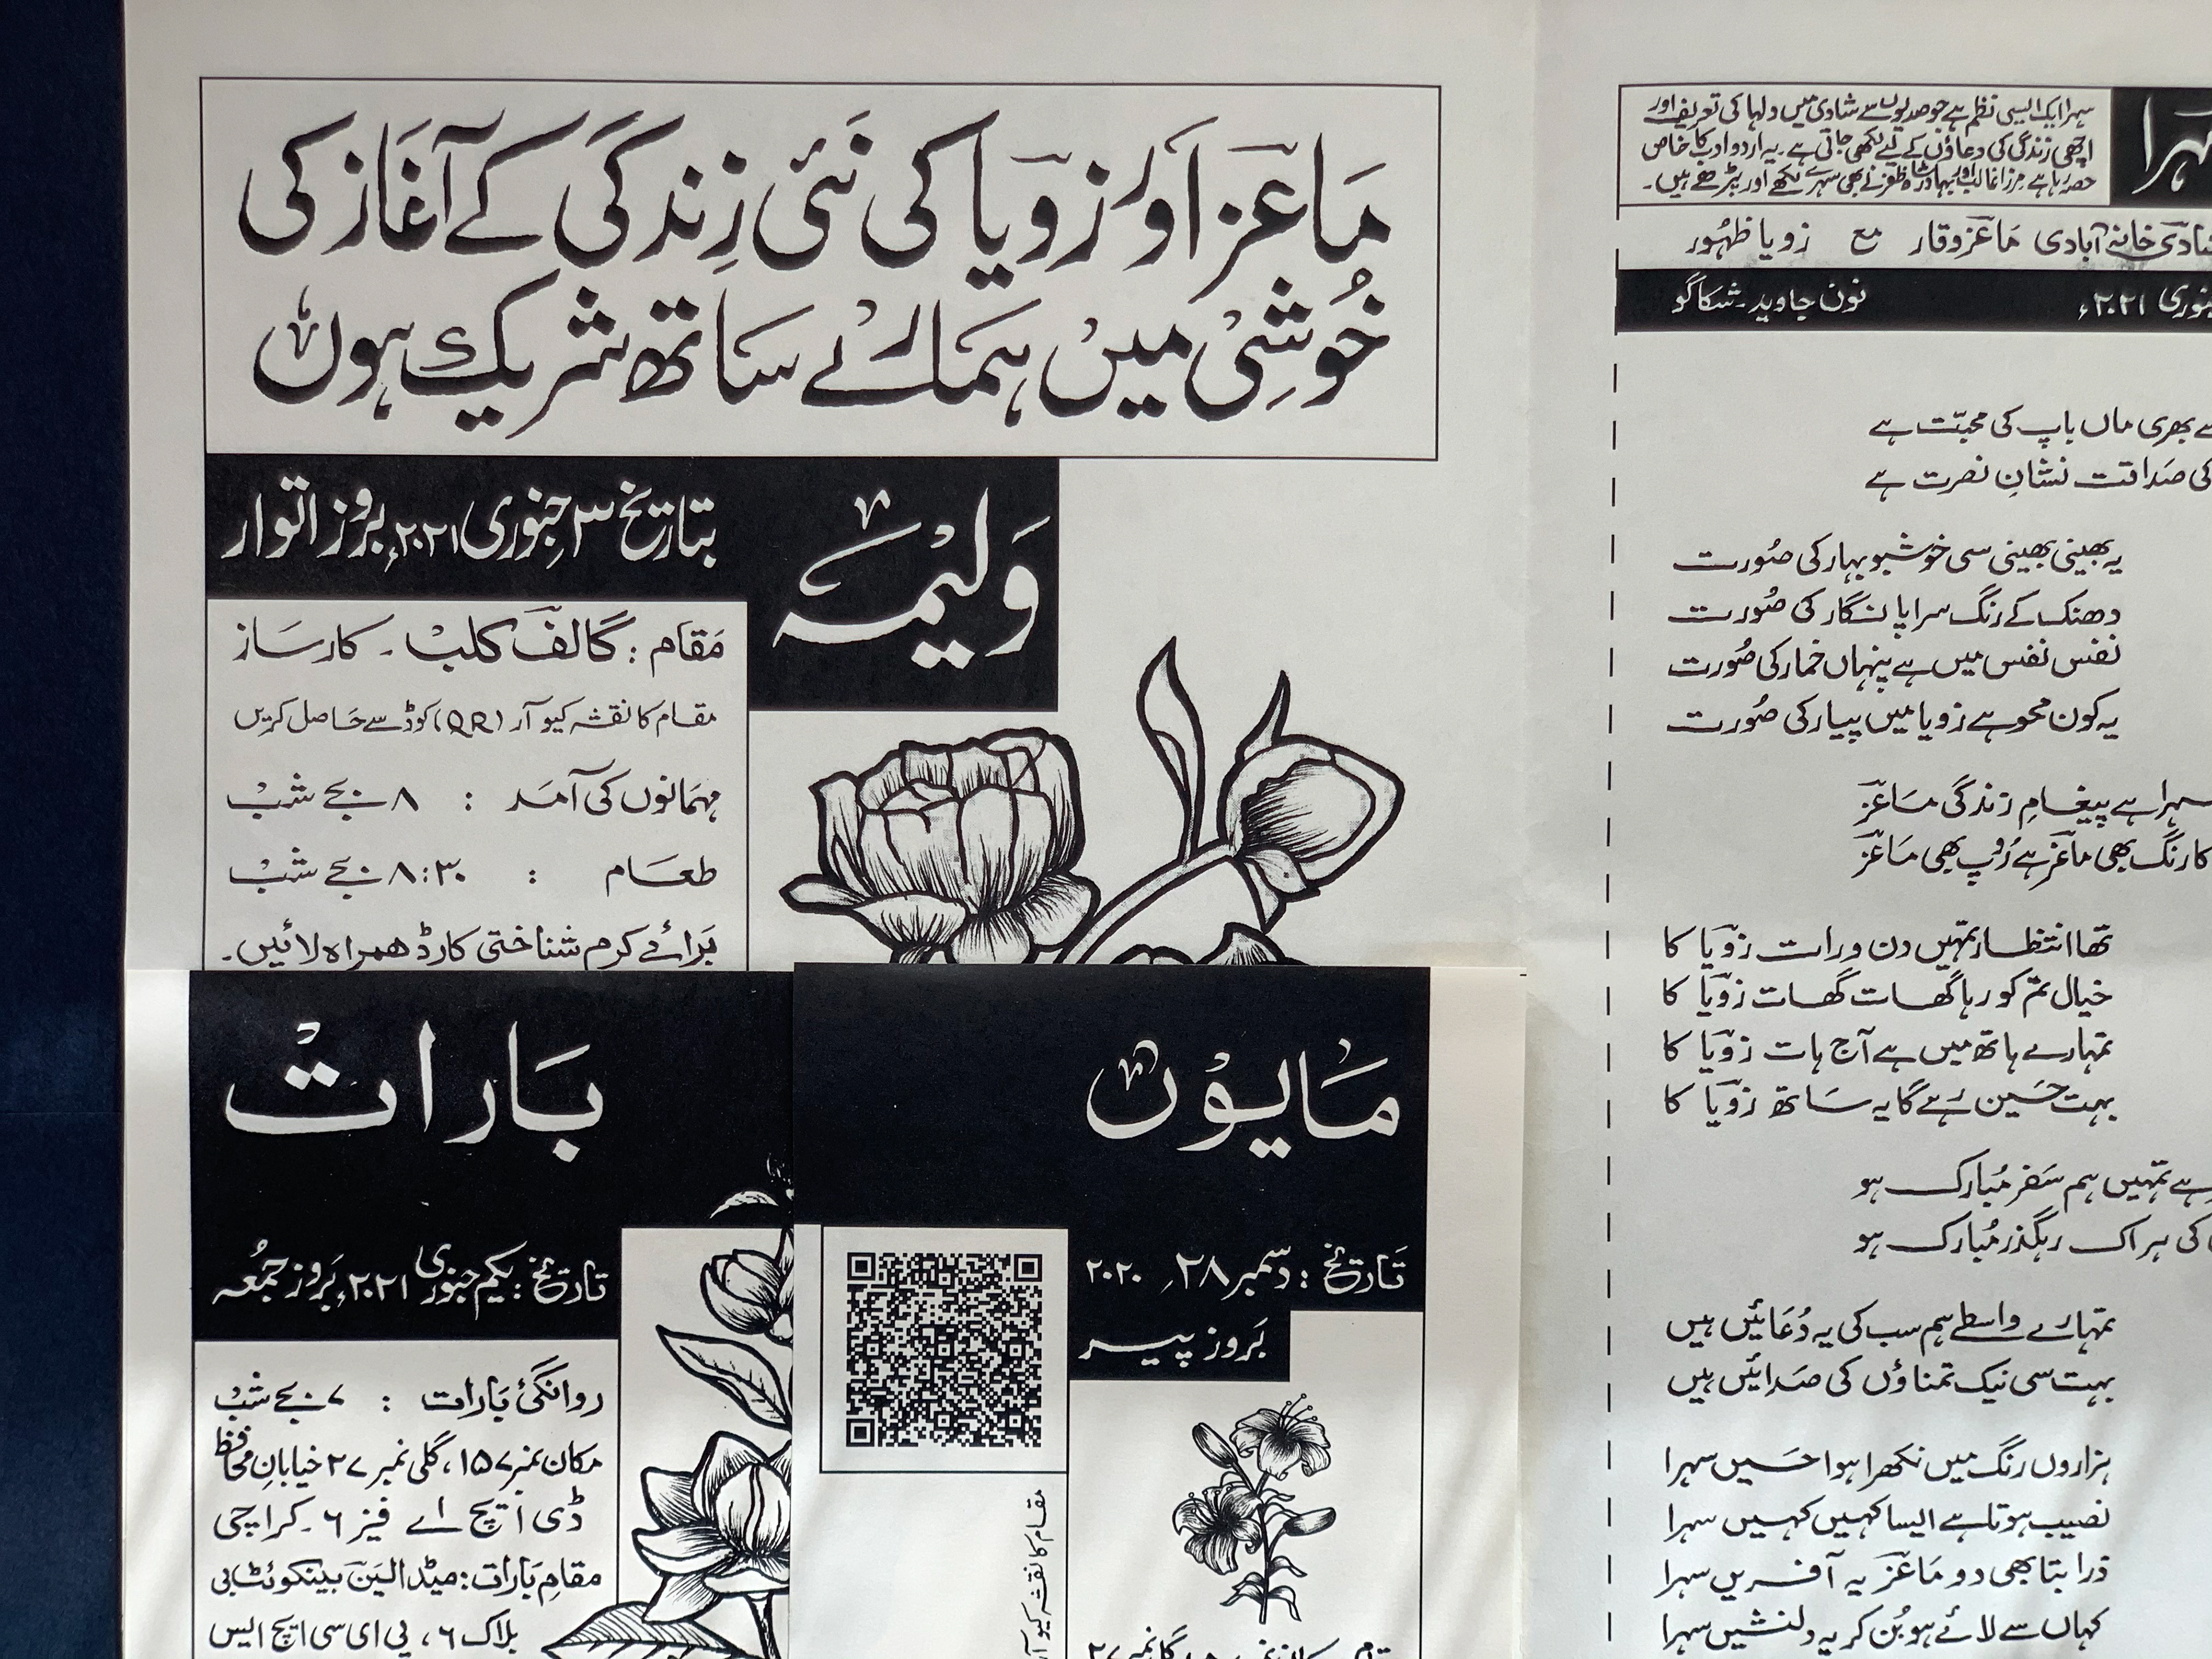 ماعز اور زویا کی نئی زندگی کے آغاز کی
خوشی میں ہمارے ساتھ شریک ہوں
ولیمہ
بتاریخ ۳ جنوری ۲۰۲۱ء بروز اتوار
مقام : گالف کلب ۔ کارساز
مقام کا نقشہ کیو آر (QR) کوڈ سے حاصل کریں
مہمانوں کی آمد : ۸ بجے شب
طعام : ۸:۳۰ بجے شب
برائے کرم شناختی کارڈ ھمراہ لائیں۔
بارات
تاریخ : یکم جنوری ۲۰۲۱ء بروز جمعہ
روانگئ بارات : ۷ بجے شب
مکان نمبر ۱۵۷، گلی نمبر ۲۷ خیابانِ محافظ
ڈی ایچ اے فیز ۶ ۔ کراچی
مقامِ بارات : میڈالین بینکوئٹ بی
بلاک ۶ ، پی ای سی ایچ ایس
مایوں
تاریخ : دسمبر ۲۸، ۲۰۲۰
بروز پیر
مقام کا نقشہ کیو آر
سہرا ایک ایسی نظم ہے جو صدیوں سے شادی میں دلہا کی تعریف اور
اچھی زندگی کی دعاؤں کے لیے لکھی جاتی ہے۔ یہ اردو ادب کا خاص
حصہ رہا ہے مرزا غالب اور بہادر شاہ ظفر نے بھی سہرے لکھے اور پڑھے ہیں۔
خانہ آبادی ماعز وقار مع زویا ظہور
۲۰۲۱ء نون جاوید ۔ شکاگو
بھری ماں باپ کی محبّت ہے
کی صداقت نشانِ نصرت ہے
یہ بھینی بھینی سی خوشبو بہار کی صورت
دھنک کے رنگ سراپا نگار کی صورت
نفس نفس میں ہے پنہاں خمار کی صورت
یہ کون محو ہے زویا میں پیار کی صورت
سہرا ہے پیغامِ زندگی ماعز
کا رنگ بھی ماعز ہے رُوپ بھی ماعز
تھا انتظار تمہیں دن و رات زویا کا
خیال تم کو رہا گھات گھات زویا کا
تمہارے ہاتھ میں ہے آج ہات زویا کا
بہت حسین رہے گا یہ ساتھ زویا کا
ہے تمہیں ہم سفر مُبارک ہو
کی ہر اک رہگذر مُبارک ہو
تمہارے واسطے ہم سب کی یہ دُعائیں ہیں
بہت سی نیک تمناؤں کی صدائیں ہیں
ہزاروں رنگ میں نکھرا ہوا حسیں سہرا
نصیب ہوتا ہے ایسا کہیں کہیں سہرا
ذرا بتا بھی دو ماعز یہ آفریں سہرا
کہاں سے لائے ہو بُن کر یہ دلنشیں سہرا